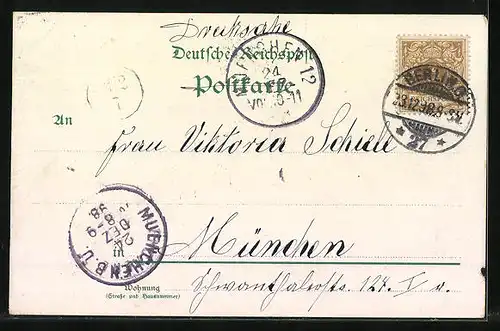 Drucksache
Deutsche Reichspost
Postkarte
MUENCHEN 12
24
BERLIN
23.12.98.8-9N.
* 27 *
An
Frau Viktoria Schiell
MUENCHEN B.U.
24
DEZ
8-9
98
in
München
Wohnung
(Straße und Hausnummer)
Schwanthalerstr. 124. I r.